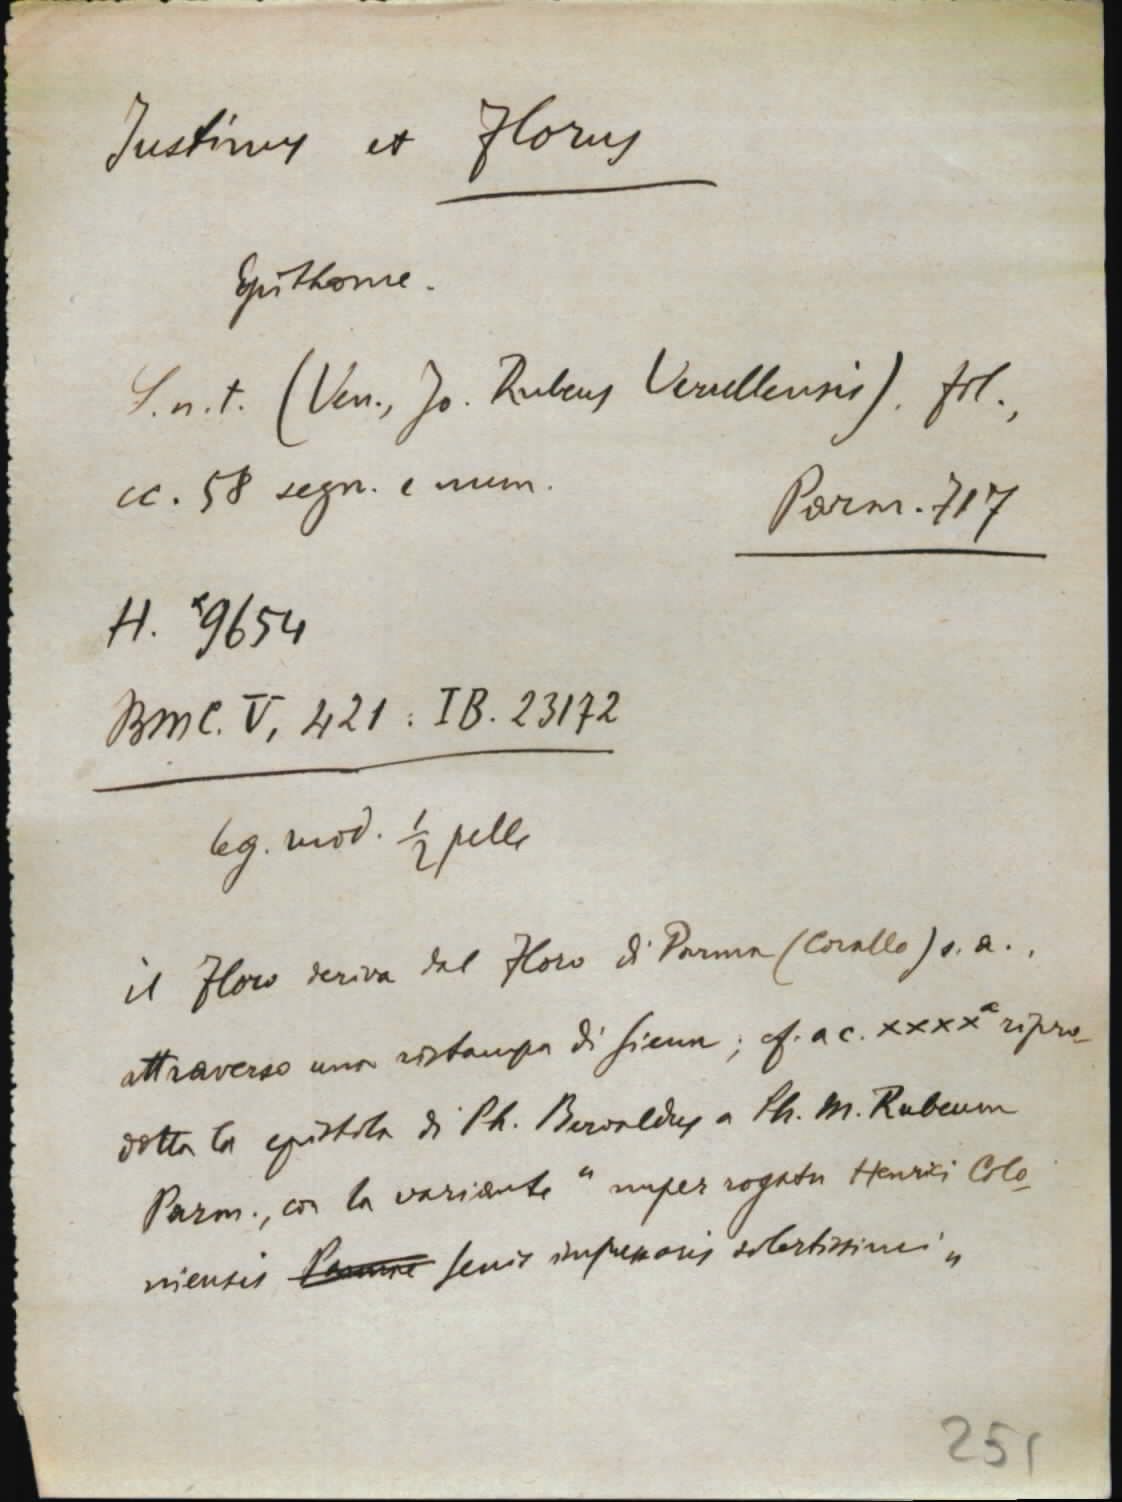 Justinus et Florus
Epithome.
S.n.t. (Ven., Jo. Rubeus Vercellensis). fol.,
cc. 58 segn. e num.
Parm. 717
H. *9654
BMC. V, 421 : IB. 23172
leg. mod. 1/2 pelle
il Floro deriva dal Floro di Parma (Corallo) s.a.,
attraverso una ristampa di Siena ; cf. a c. XXXXa ripro-
dotta la epistola di Ph. Beroaldus a Ph. M. Rubeum
Parm., con la variante "nuper rogatu Henrici Colo-
niensis Parmae Senis impressoris solertissimi"
251